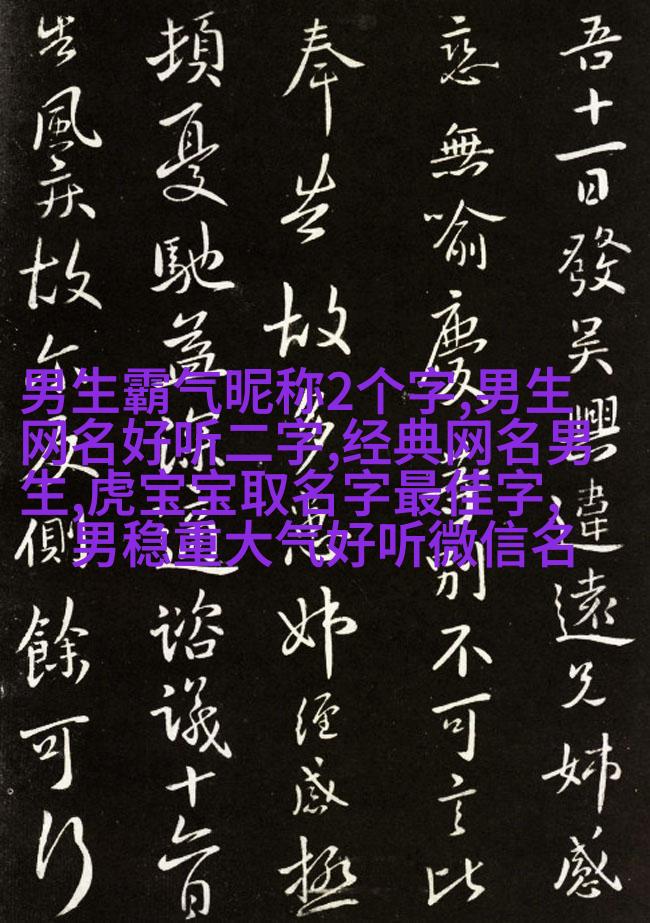 吾十一日發吳興違遠兄姊感
戀無喻慶等別不可言比
奉告故多患姊經感極
頓憂馳益深適諮議十六日
告風疾故尔反側餘可行
男生霸气昵称2个字,男生
网名好听二字,经典网名男
生,虎宝宝取名字最佳字,
男稳重大气好听微信名